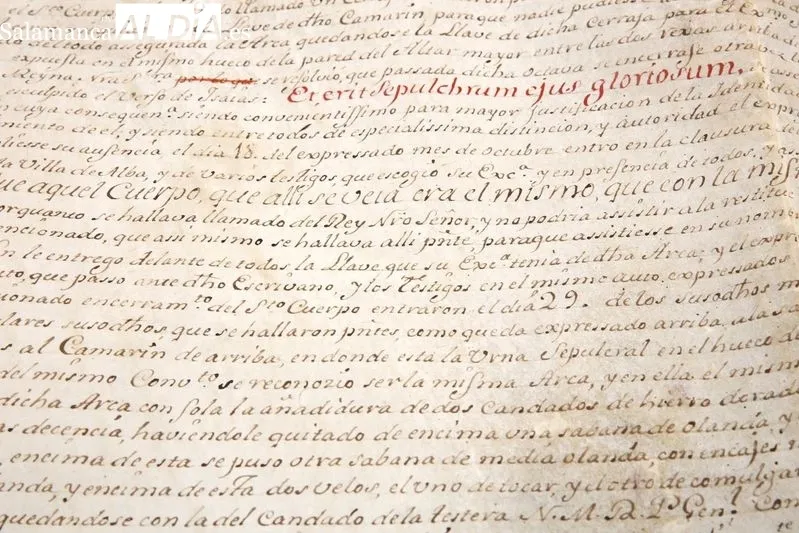 Salamanca AL DÍA .es
de dho Camarin, para que nadie pudiesse
do del todo assegurada la Arca quedandose la Llave de dicha Cerraja para el Exmo
expuesta en el mismo hueco de la pared del Altar mayor, entre las dos rexas arriba di
Reyna. por lo que se resolvio, que passada dicha octava se encerrasse otra vez la
esculpido el Verso de Isaias: Et erit sepulchrum ejus gloriosum.
cuya consequena siendo convenientissimo para mayor justificacion de la Identidad
miento de el, y siendo entre todos de especialissima distincion, y autoridad el expre
tiesse su ausencia el dia 18. del expressado mes de octubre entro en la clausura de
la Villa de Alba, y de varios testigos, que escogio su Exca. y en presencia de todos, y as
que aquel Cuerpo, que alli se veia era el mismo, que con la mis
orquanto se hallava llamado del Rey Nro Señor, y no podria assistir a la restitue
encionado, que assi mismo se hallava alli pnte, para que assistiesse en su nom
on le entrego delante de todos, la Llave, que su Exca. tenia de dha Arca; y el expre
uto, que passo ante dho Escrivano, y los testigos en el mismo auto expressados
ionado encerramto. del Sto Cuerpo entraron el dia 29. de los susodhos m
lares susodhos, que se hallaron pntes, como queda expressado arriba, a la sa
s al Camarin de arriba, en donde està la Urna Sepulcral en el hueco de
del mismo Convto. se reconozio ser la misma Arca, y en ella el mismo
dicha Arca con sola la añadidura de dos Candados de hierro dorad
as decencia, haviendole quitado de encima una sabana de olanda, y
, encima de esta se puso otra sabana de media olanda, con encajes
anda, y encima de esta dos velos, el uno de tocar, y el otro de comulgar
quedandose con la del Candado de la testera N. M. R. P. Genl. Con